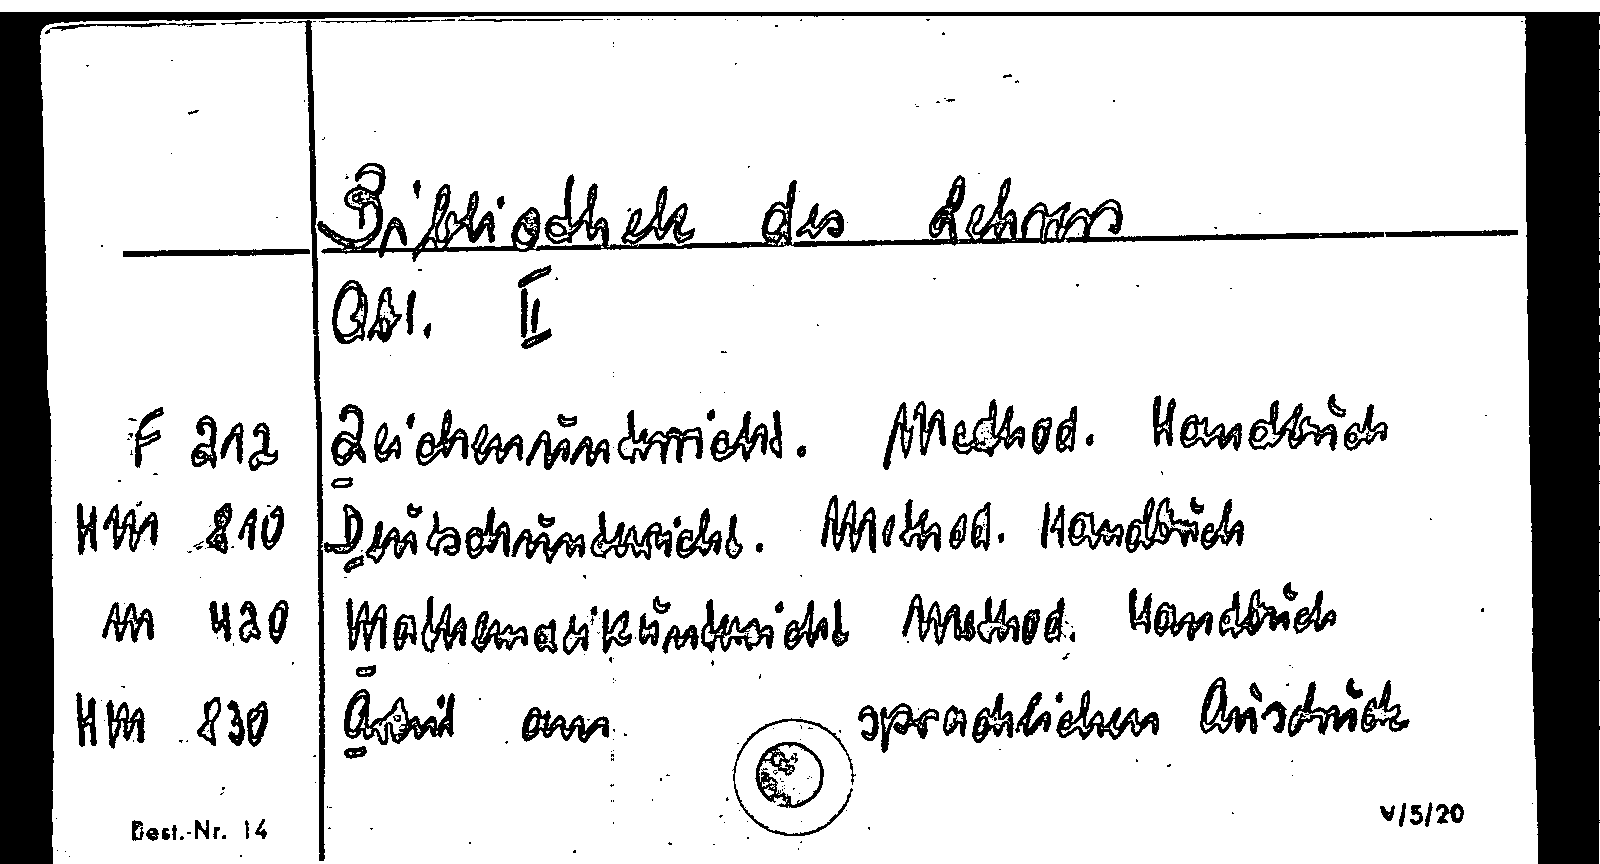 Bibliothek des Lehrers
Abt. II
F 212 Zeichenunterricht. Method. Handbuch
HM 810 Deutschunterricht. Method. Handbuch
M 420 Mathematikunterricht Method. Handbuch
HM 830 Arbeit am sprachlichen Ausdruck
Best.-Nr. 14 V/5/20